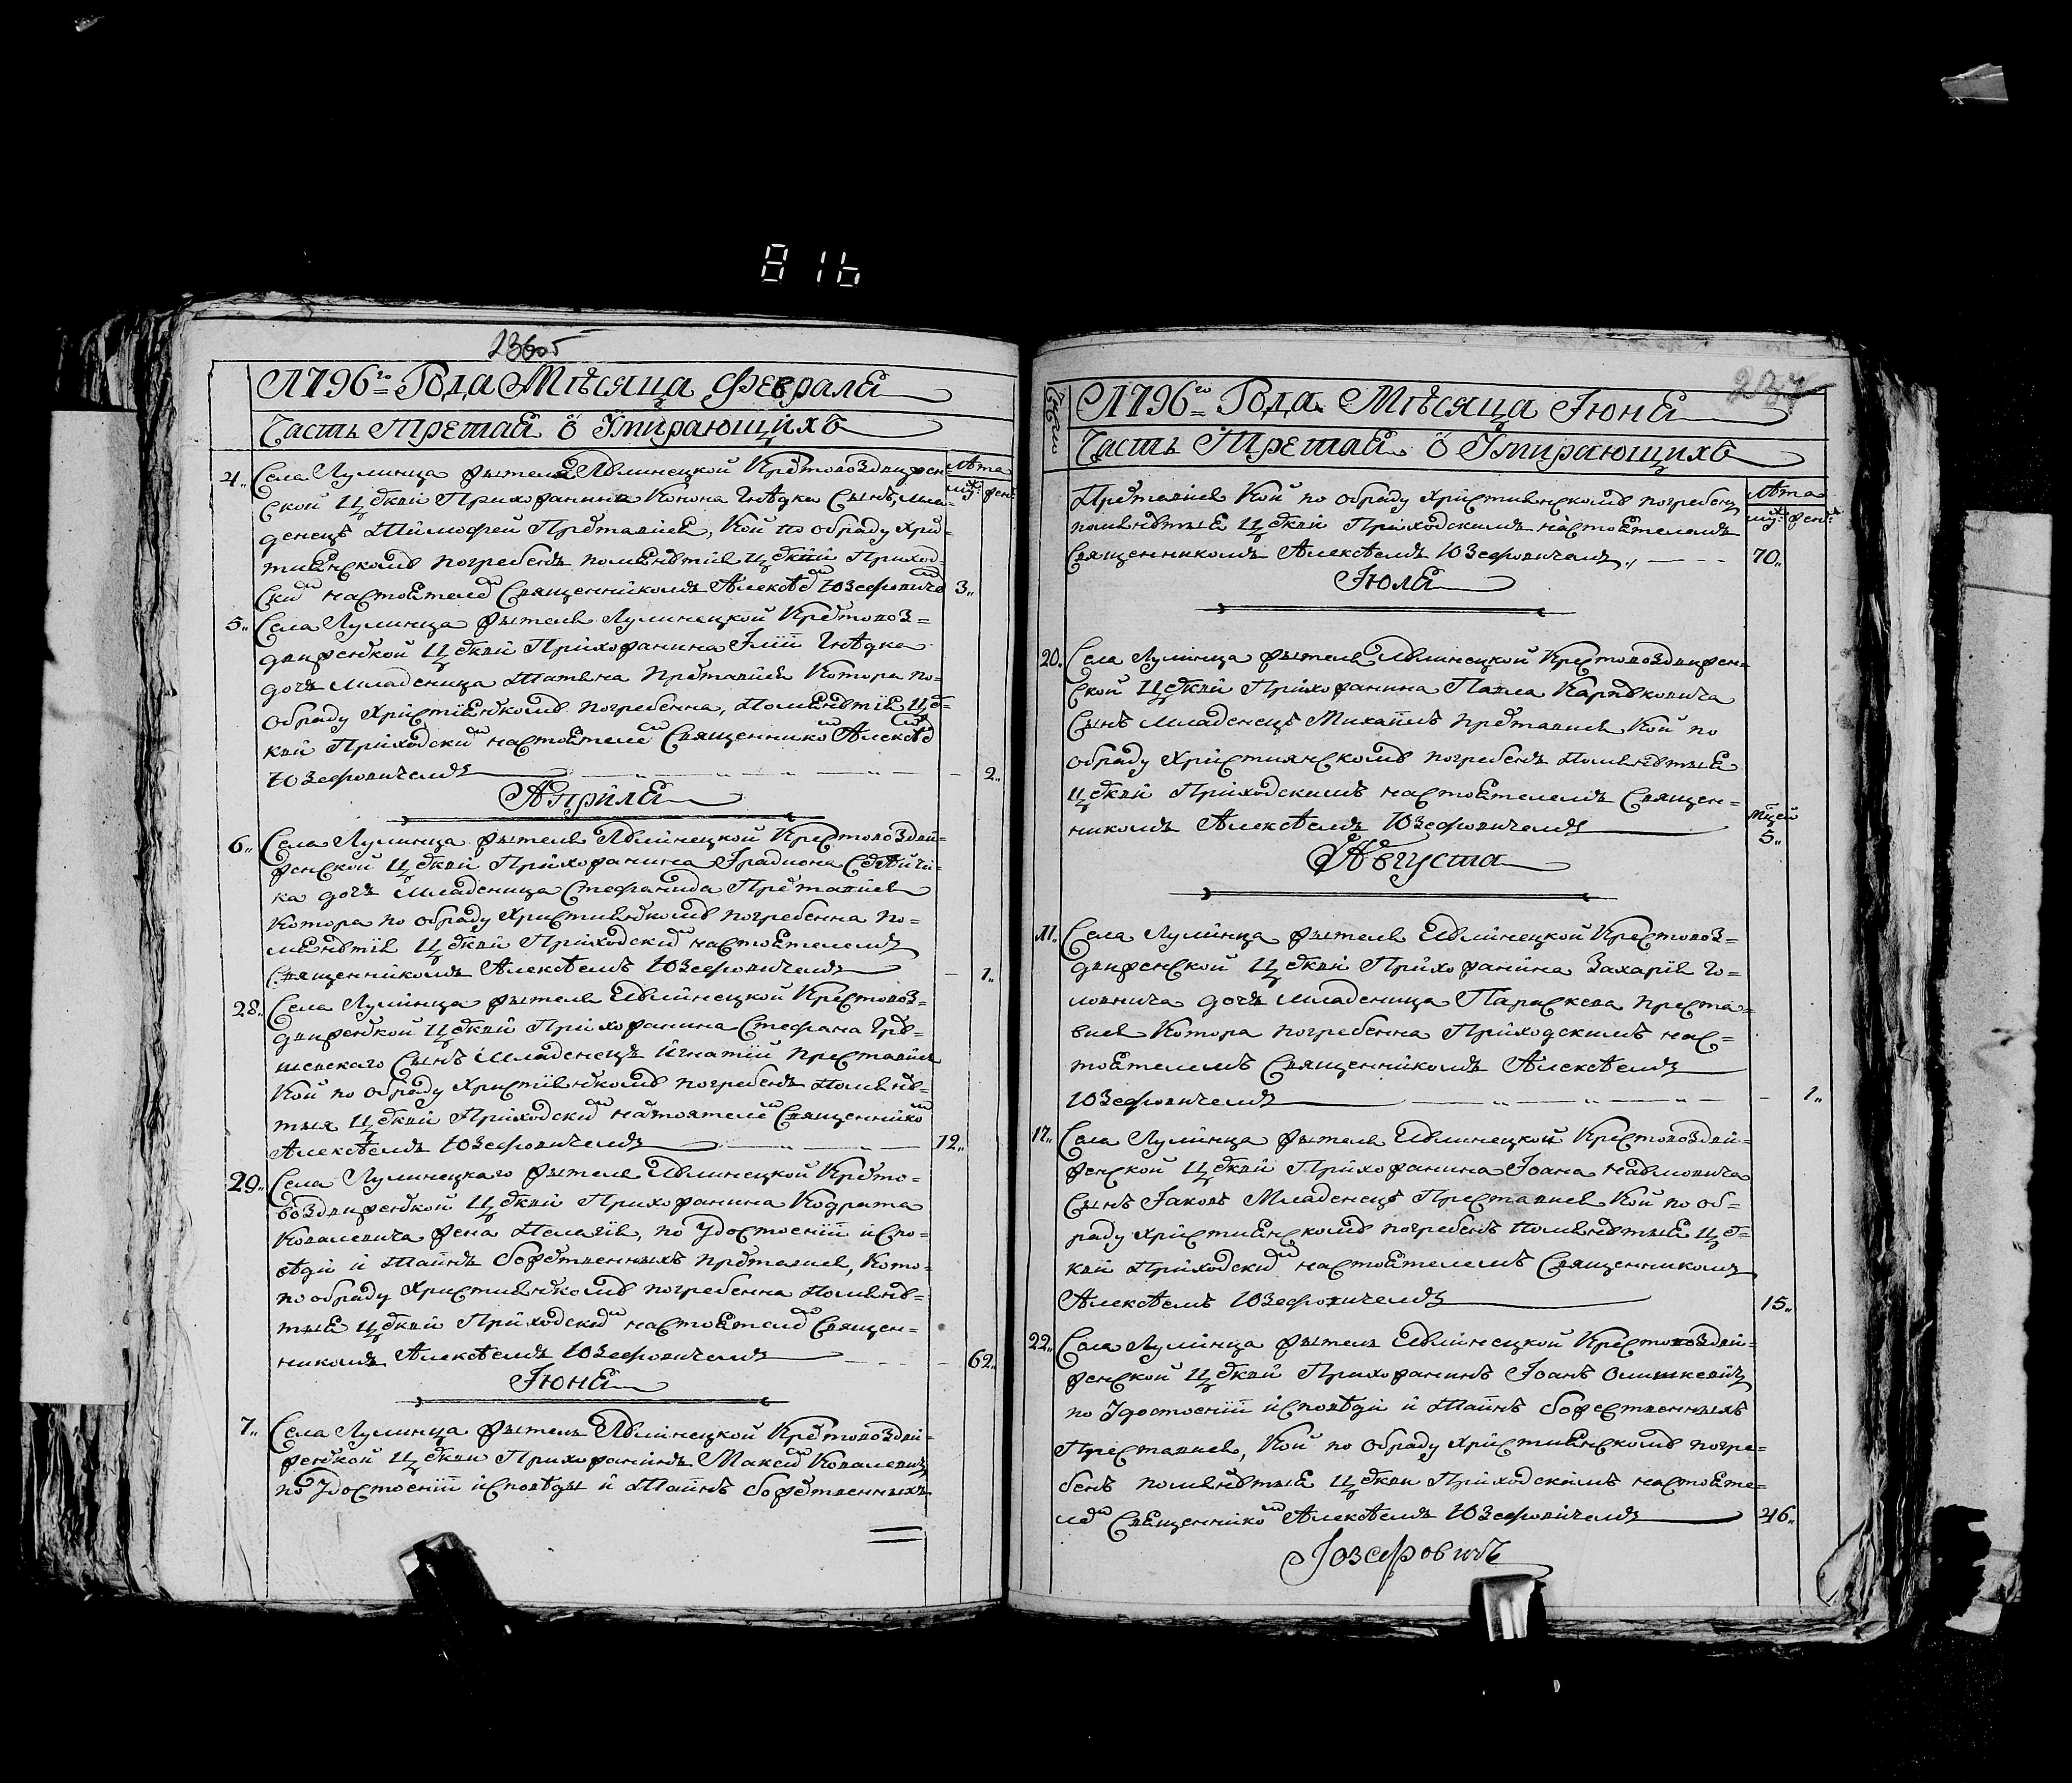 816
1796го Года Мѣсяца Февраля
Часть Третая о Умирающихъ
Лѣта
муж: жен:
4. Села Лулинца жителя Лулинецкой Крстовоздвижен
ской Цркви Прихожанина Конона Гнѣдка Сынъ, мла-
денецъ Тимофей Преставися, Кой по обряду Хри-
тиянскомѹ погребенъ помянѹтія Цркви Приход-
ским настоятелем Священникомъ Алексѣем Юзефовичем 3.
5. Села Лулинца жителя Лулинецкой Крстовоз-
движенской Цркви Прихожанина Іліи Гнѣдка
дочь младеница Татяна преставися Котора по-
обряду Христіянскомѹ погребенна, Помянѹтія Цр-
кви Приходским настоятелем Священником Алексѣем
Юзефовичемъ 2.
Априля
6. Села Лулинца жителя Лѹлинецкой Крестовоздви-
женской Цркви Прихожанина Ірадиона
ка дочь младеница Стефанида Преставися
Котора по обряду Християнскомѹ погребенна по-
мянѹтія Цркви Приходским настоятелемъ
Священникомъ Алексѣемъ Юзефовичемъ 1.
28. Села Лулинца жителя Лѹлинецкой Крестовоз-
движенской Цркви Прихожанина Стефана Грѹ-
шевскаго Сынъ Младенецъ Игнатій преставися
Кой по обряду Христіянскомѹ погребенъ Помянѹ-
тыя Цркви Приходским настоятелем Священником
Алексѣемъ Юзефовичемъ 12.
29. Села Лулинецкаго жителя Лѹлинецкой Крсто-
воздвиженской Цркви Прихожанина Кодрата
Ковалевича жена Пелагія, по Удостоеніи испо-
вѣди и Таинъ божественныхъ преставися, Кото-
по обряду Християнскомѹ погребенна Помянѹ-
тыя Цркви Приходским настоятелем Священ-
никомъ Алексѣемъ Юзефовичемъ 62.
Іюня
7. Села Лулинца житель Лѹлинецкой Крстовоздви-
женской Цркви Прихожанинъ Максим Ковалевич
по Удостоеніи исповѣды и Таинъ божественныхъ
1796го Года Мѣсяца Іюня
Часть Третая о Умирающихъ
Лѣта
муж: жен:
Преставися Кой по обряду християнскомѹ погребенъ
помянѹтыя Цркви Приходскимъ настоятелемъ
Священникомъ Алексѣемъ Юзефовичемъ 70.
Іюля
20. Села Лулинца жителя Лѹлинецкой Крестовоздвижен-
ской Цркви Прихожанина Павла Карпѹковича
Сынъ младенецъ Михаилъ преставися Кой по
обряду християнскомѹ погребенъ Помянѹтыя
Цркви Приходскимъ настоятелемъ Священ-
никомъ Алексѣемъ Юзефовичемъ мцей 5.
Августа
11. Села Лулинца жителя Лѹлинецкой Крестовоз-
движенской Цркви Прихожанина Захарія Го-
ловнича дочь младеница Параскева преста-
вися Котора погребенна Приходскимъ нас-
тоятелемъ Священникомъ Алексѣемъ
Юзефовичемъ 1.
17. Села Лулинца жителя Лѹлинецкой Крестовоздви-
женской Цркви Прихожанина Іоана Наѹмовича
Сынъ Іаковъ Младенецъ Преставися Кой по об-
ряду християнскомѹ погребенъ помянѹтыя Цр-
кви Приходским настоятелемъ Священникомъ
Алексѣемъ Юзефовичемъ 15.
22. Села Лулинца житель Лѹлинецкой Крестовоздви-
женской Цркви Прихожанинъ Іоанъ Олишкевичъ
по Удостоеніи исповѣди и Таинъ божественныхъ
Преставися, Кой по обряду християнскомѹ погре-
бенъ помянѹтыя Цркви Приходскимъ настояте-
лем Священником Алексѣемъ Юзефовичемъ 46.
Іозефовичъ